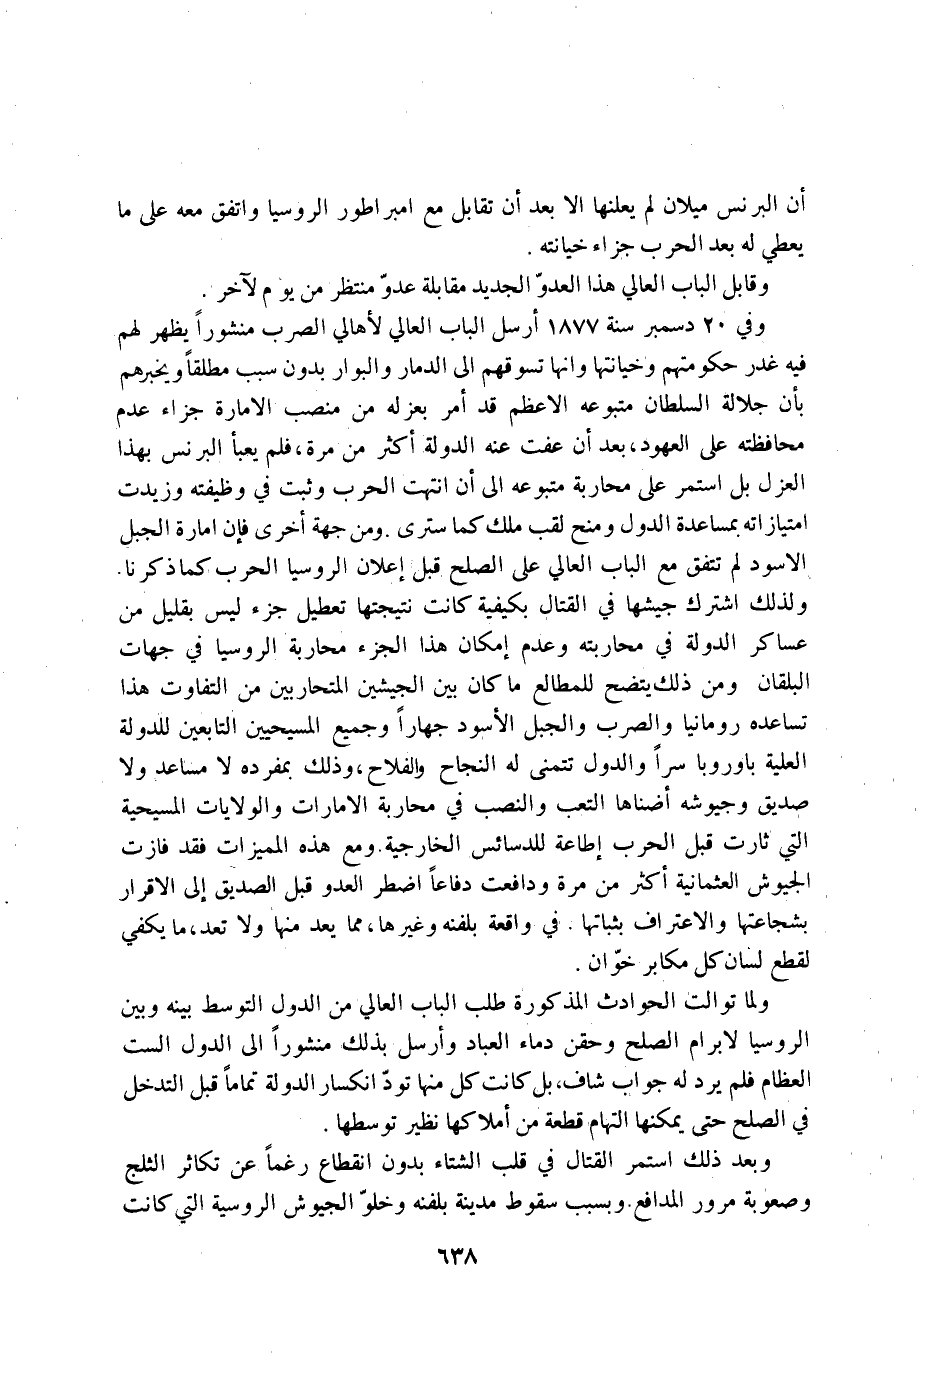 أن البرنس ميلان لم يعلنها الا بعد أن تقابل مع امبراطور الروسيا واتفق معه على ما
يعطي له بعد الحرب جزاء خيانته .
وقابل الباب العالي هذا العدوّ الجديد مقابلة عدوّ منتظر من يوم لآخر .
وفي ٢٠ دسمبر سنة ١٨٧٧ أرسل الباب العالي لأهالي الصرب منشوراً يظهر لهم
فيه غدر حكومتهم وخيانتها وانها تسوقهم الى الدمار والبوار بدون سبب مطلقاً ويخبرهم
بأن جلالة السلطان متبوعه الاعظم قد أمر بعزله من منصب الامارة جزاء عدم
محافظته على العهود، بعد أن عفت عنه الدولة أكثر من مرة، فلم يعبأ البرنس بهذا
العزل بل استمر على محاربة متبوعه الى أن انتهت الحرب وثبت في وظيفته وزيدت
امتيازاته بمساعدة الدول ومنح لقب ملك كما سترى . ومن جهة أخرى فإن امارة الجبل
الاسود لم تتفق مع الباب العالي على الصلح قبل إعلان الروسيا الحرب كما ذكرنا.
ولذلك اشترك جيشها في القتال بكيفية كانت نتيجتها تعطيل جزء ليس بقليل من
عساكر الدولة في محاربته وعدم إمكان هذا الجزء محاربة الروسيا في جهات
البلقان ومن ذلك يتضح للمطالع ما كان بين الجيشين المتحاربين من التفاوت هذا
تساعده رومانيا والصرب والجبل الأسود جهاراً وجميع المسيحيين التابعين للدولة
العلية باوروبا سراً والدول تتمنى له النجاح والفلاح، وذلك بمفرده لا مساعد ولا
صديق وجيوشه أضناها التعب والنصب في محاربة الامارات والولايات المسيحية
التي ثارت قبل الحرب إطاعة للدسائس الخارجية. ومع هذه المميزات فقد فازت
الجيوش العثمانية أكثر من مرة ودافعت دفاعاً اضطر العدو قبل الصديق إلى الاقرار
بشجاعتها والاعتراف بثباتها . في واقعة بلفنه وغيرها، مما يعد منها ولا تعد، ما يكفي
لقطع لسان كل مكابر خوّان .
ولما توالت الحوادث المذكورة طلب الباب العالي من الدول التوسط بينه وبين
الروسيا لابرام الصلح وحقن دماء العباد وأرسل بذلك منشوراً الى الدول الست
العظام فلم يرد له جواب شاف، بل كانت كل منها تودّ انكسار الدولة تماماً قبل التدخل
في الصلح حتى يمكنها التهام قطعة من أملاكها نظير توسطها .
وبعد ذلك استمر القتال في قلب الشتاء بدون انقطاع رغماً عن تكاثر الثلج
وصعوبة مرور المدافع. وبسبب سقوط مدينة بلفنه وخلوّ الجيوش الروسية التي كانت
٦٣٨